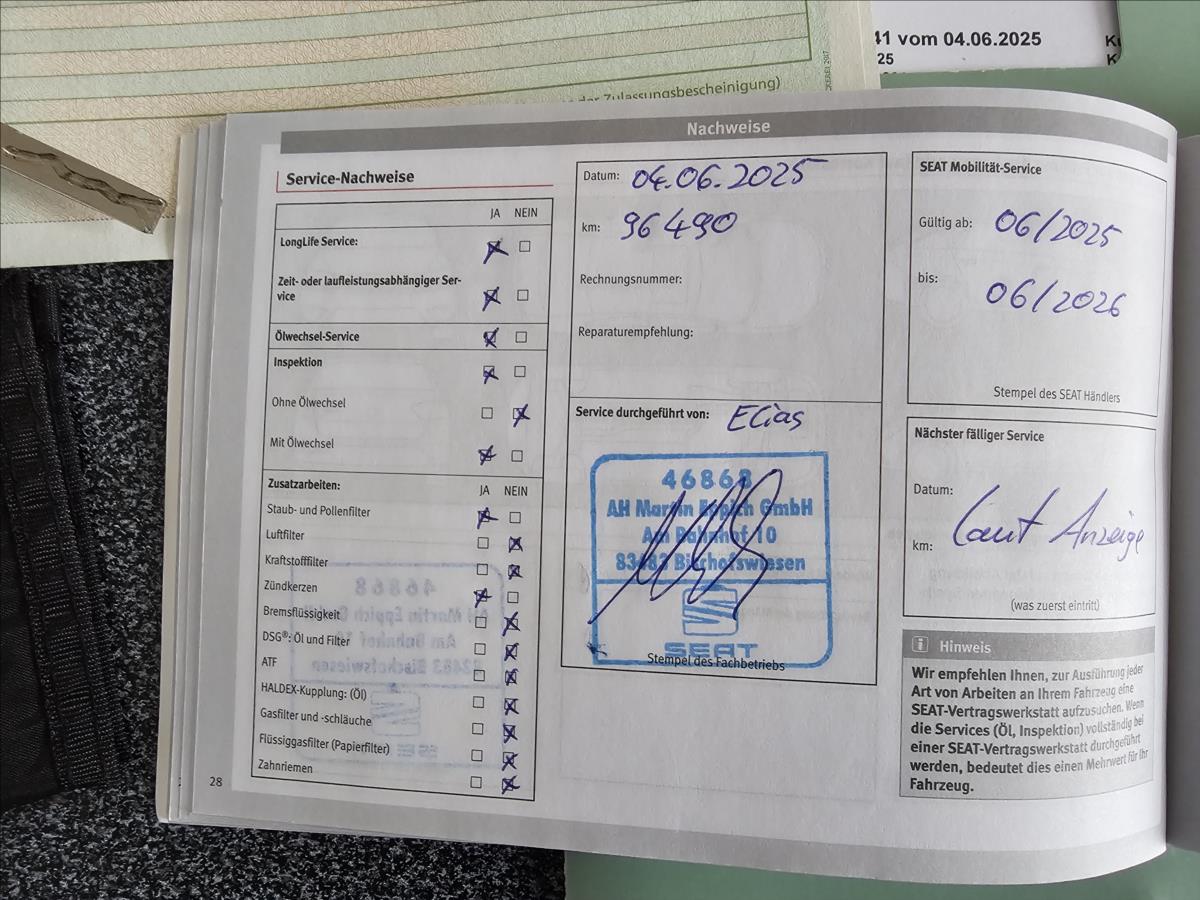 41 vom 04.06.2025
25
der Zulassungsbescheinigung)
Nachweise
Service-Nachweise
JA NEIN
LongLife Service:
Zeit- oder laufleistungsabhängiger Ser-
vice
Ölwechsel-Service
Inspektion
Ohne Ölwechsel
Mit Ölwechsel
Zusatzarbeiten: JA NEIN
Staub- und Pollenfilter
Luftfilter
Kraftstofffilter
Zündkerzen
Bremsflüssigkeit
DSG®: Öl und Filter
ATF
HALDEX-Kupplung: (Öl)
Gasfilter und -schläuche
Flüssiggasfilter (Papierfilter)
Zahnriemen
28
Datum: 04.06.2025
km: 96490
Rechnungsnummer:
Reparaturempfehlung:
Service durchgeführt von: Elias
46868
AH Martin Eppich GmbH
Am Bahnhof 10
83483 Bischofswiesen
SEAT
Stempel des Fachbetriebs
SEAT Mobilität-Service
Gültig ab: 06/2025
bis: 06/2026
Stempel des SEAT Händlers
Nächster fälliger Service
Datum:
km: Laut Anzeige
(was zuerst eintritt)
Hinweis
Wir empfehlen Ihnen, zur Ausführung jeder
Art von Arbeiten an Ihrem Fahrzeug eine
SEAT-Vertragswerkstatt aufzusuchen. Wenn
die Services (Öl, Inspektion) vollständig bei
einer SEAT-Vertragswerkstatt durchgeführt
werden, bedeutet dies einen Mehrwert für Ihr
Fahrzeug.